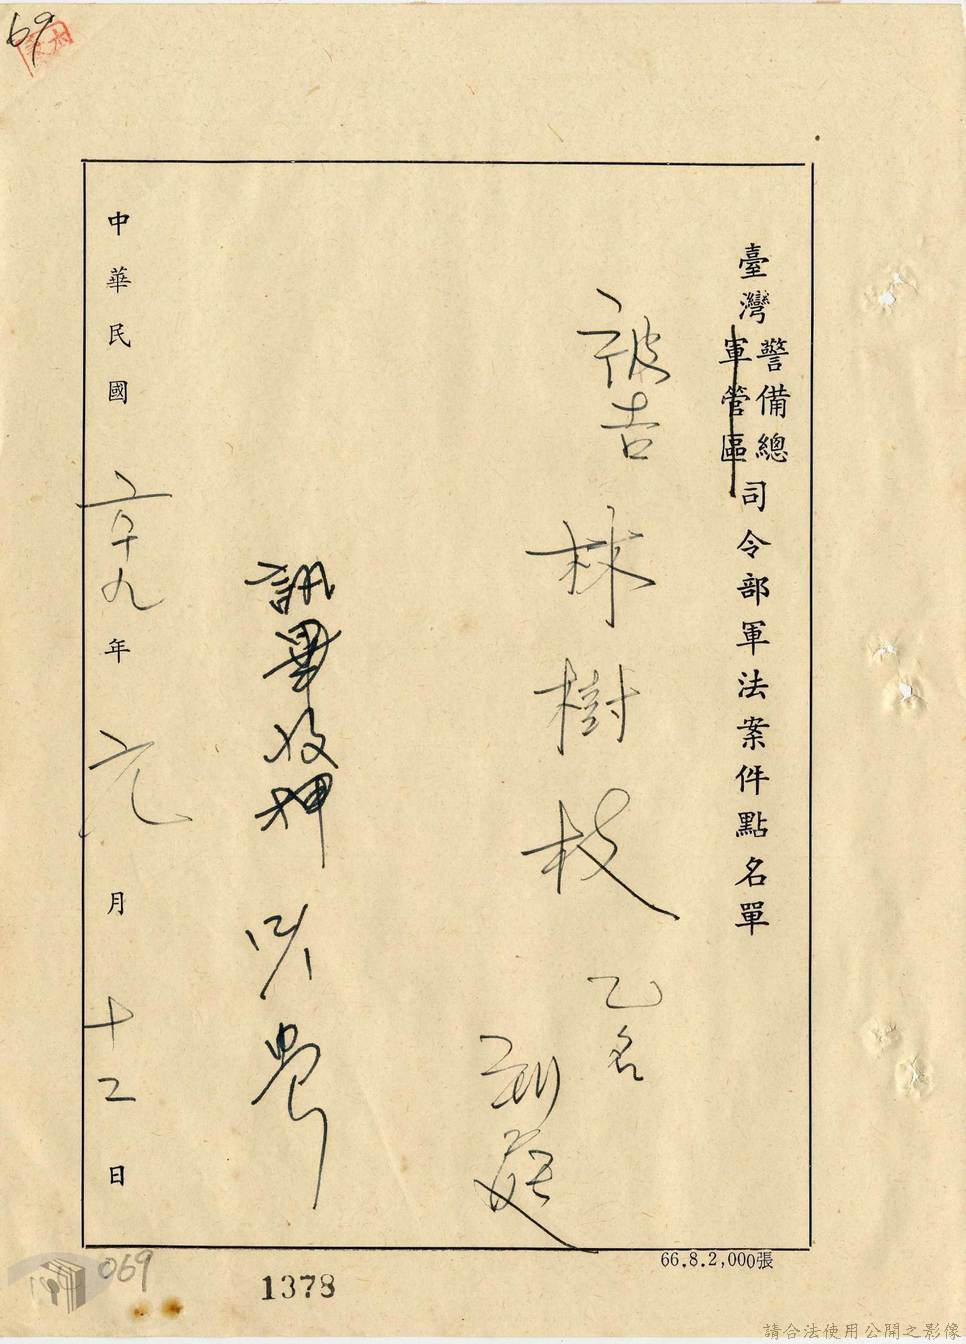 69
臺灣警備總軍管區司令部軍法案件點名單
被告林樹枝乙名
到庭
訊畢收押
中華民國六十九年元月十二日
66.8.2,000張
069
1378
請合法使用公開之影像